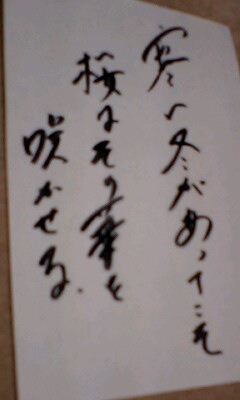 寒い冬があってこそ
桜はその華を
咲かせる。